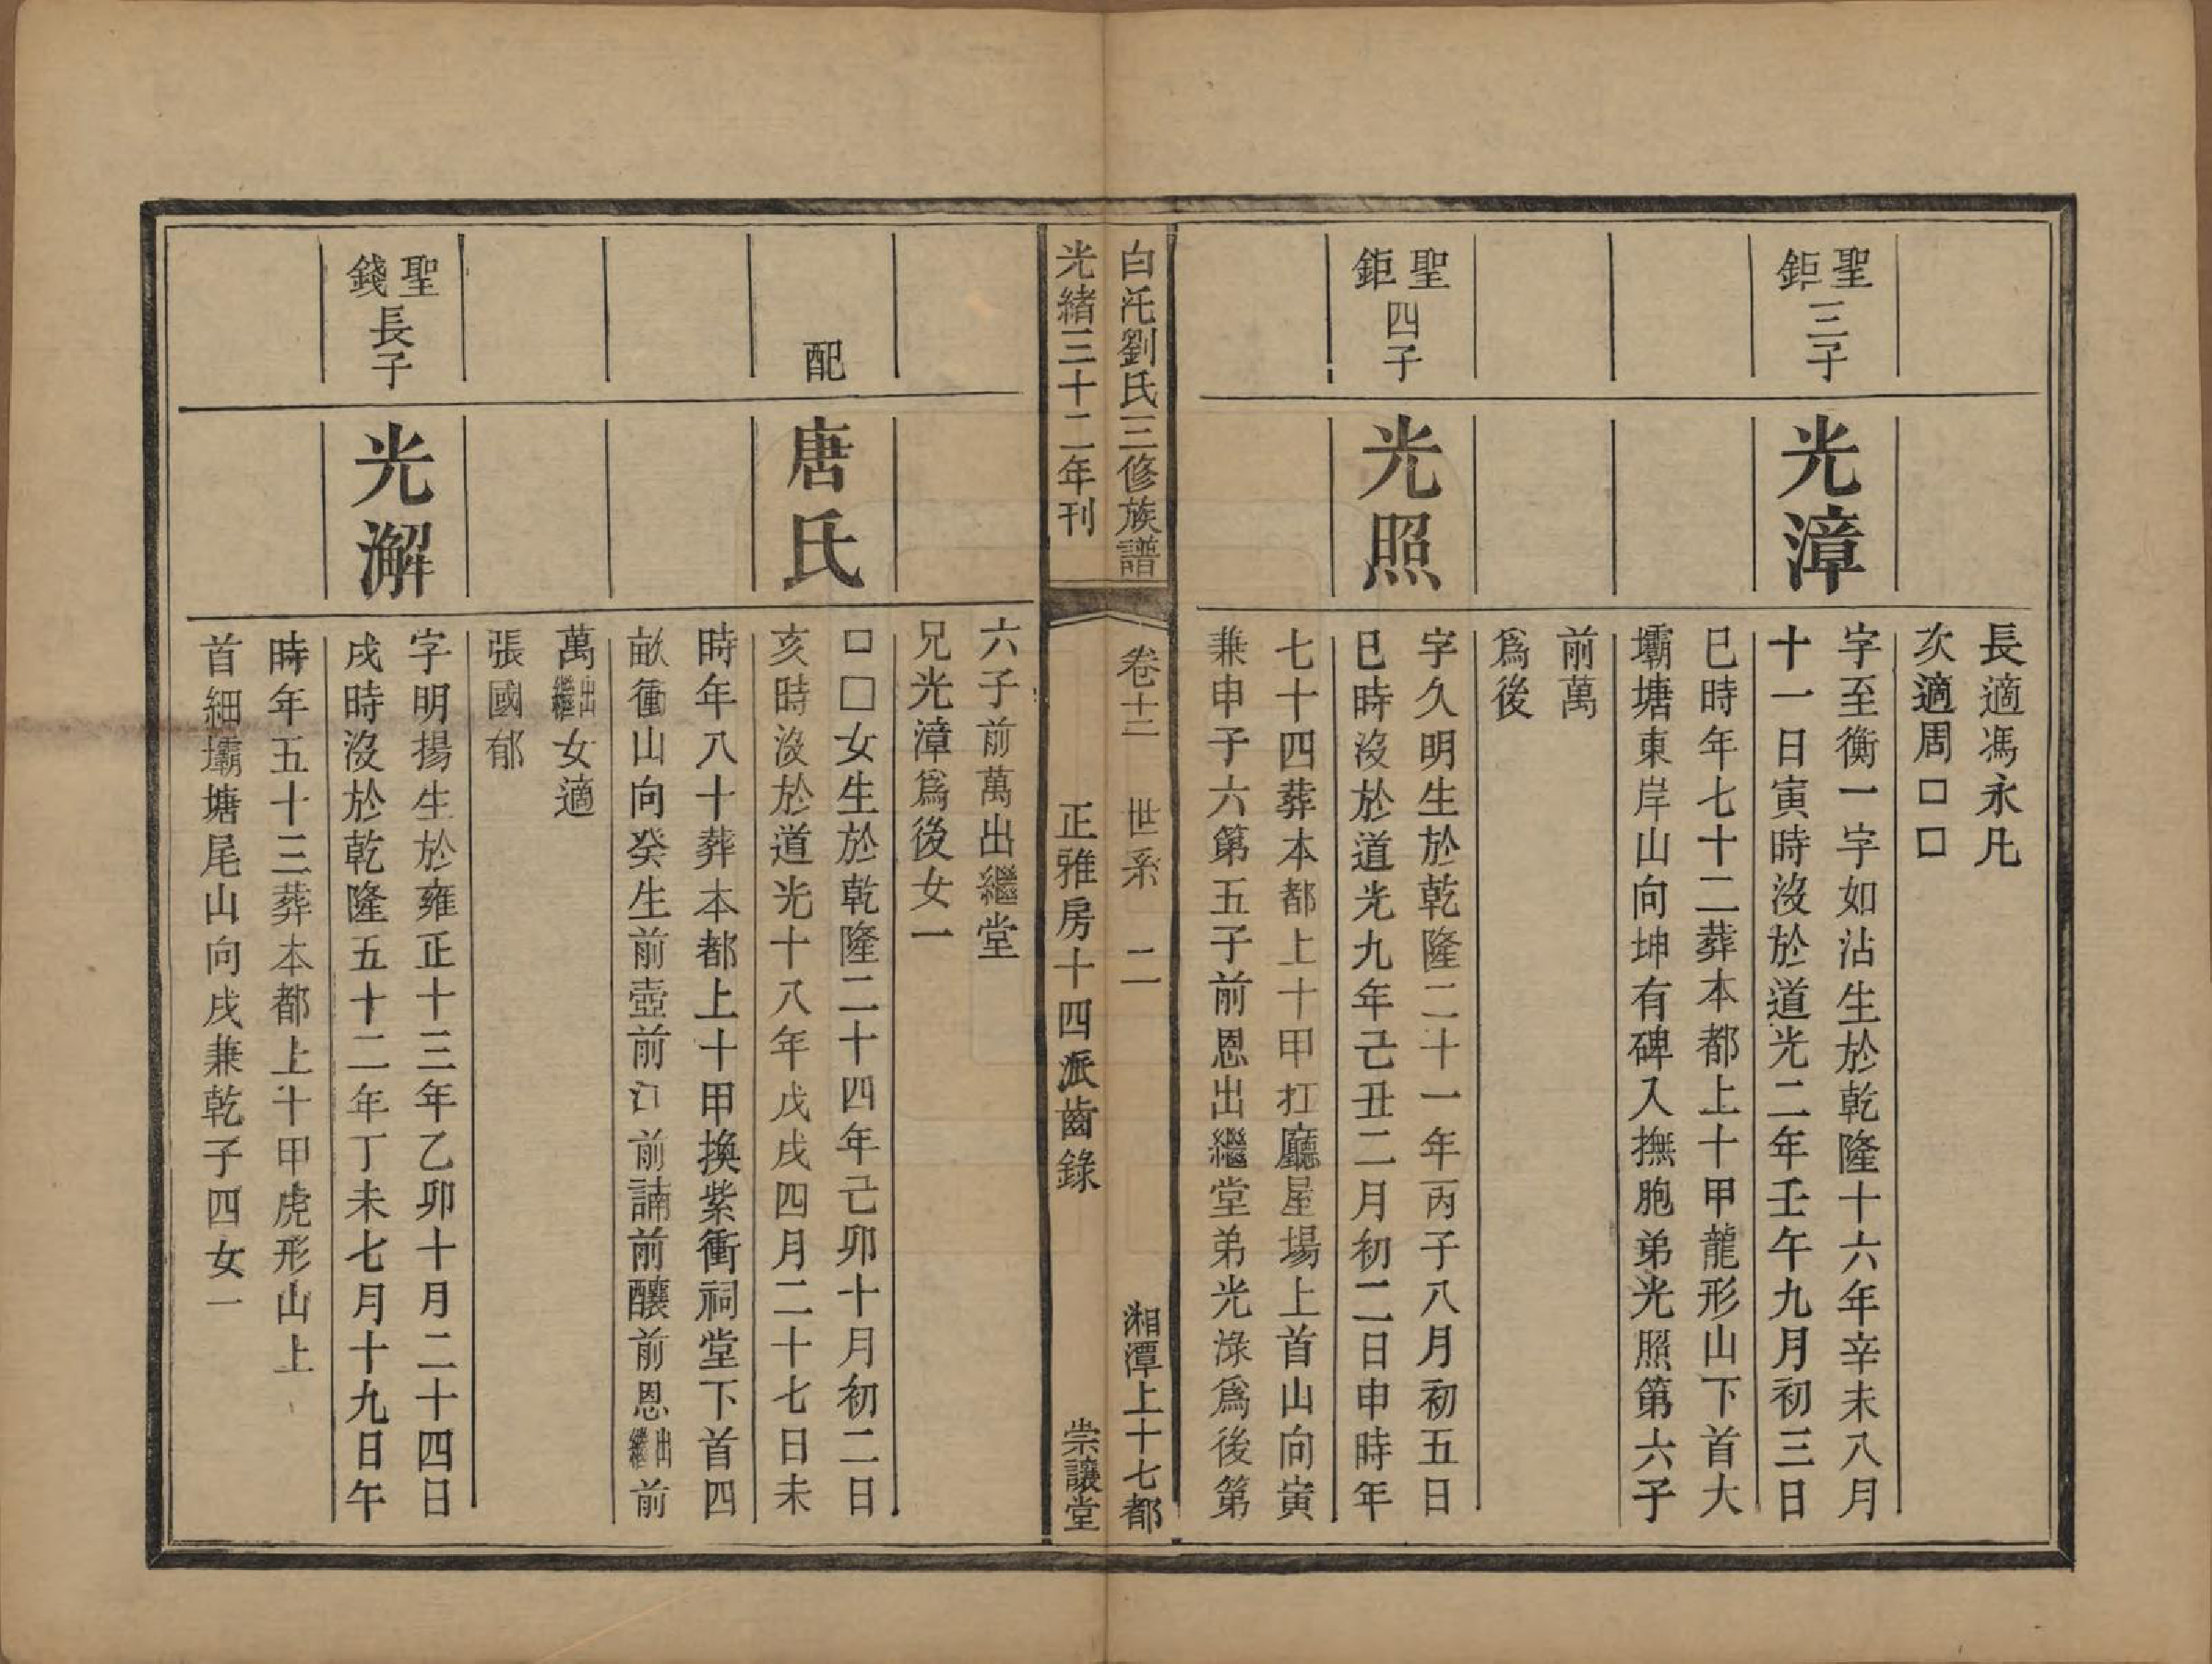 長適馮永凡
次適周□□
聖鉅三子
光漳
字至衡一字如沾生於乾隆十六年辛未八月
十一日寅時沒於道光二年壬午九月初三日
巳時年七十二葬本都上十甲龍形山下首大
壩塘東岸山向坤有碑入撫胞弟光照第六子
前萬
爲後
聖鉅四子
光照
字久明生於乾隆二十一年丙子八月初五日
巳時沒於道光九年己丑二月初二日申時年
七十四葬本都上十甲扛廳屋場上首山向寅
兼申子六第五子前恩出繼堂弟光淥爲後第
白汑劉氏三修族譜
卷十二 世系 二
湘潭上十七都
光緒三十二年刊
正雅房十四派齒錄
崇讓堂
六子前萬出繼堂
兄光漳爲後女一
配
唐氏
□□女生於乾隆二十四年己卯十月初二日
亥時沒於道光十八年戊戌四月二十七日未
時年八十葬本都上十甲換紫衝祠堂下首四
畝衝山向癸生前壺前江前諵前釀前恩出繼前
萬出繼女適
張國郁
聖錢長子
光澥
字明揚生於雍正十三年乙卯十月二十四日
戌時沒於乾隆五十二年丁未七月十九日午
時年五十三葬本都上十甲虎形山上
首細壩塘尾山向戌兼乾子四女一